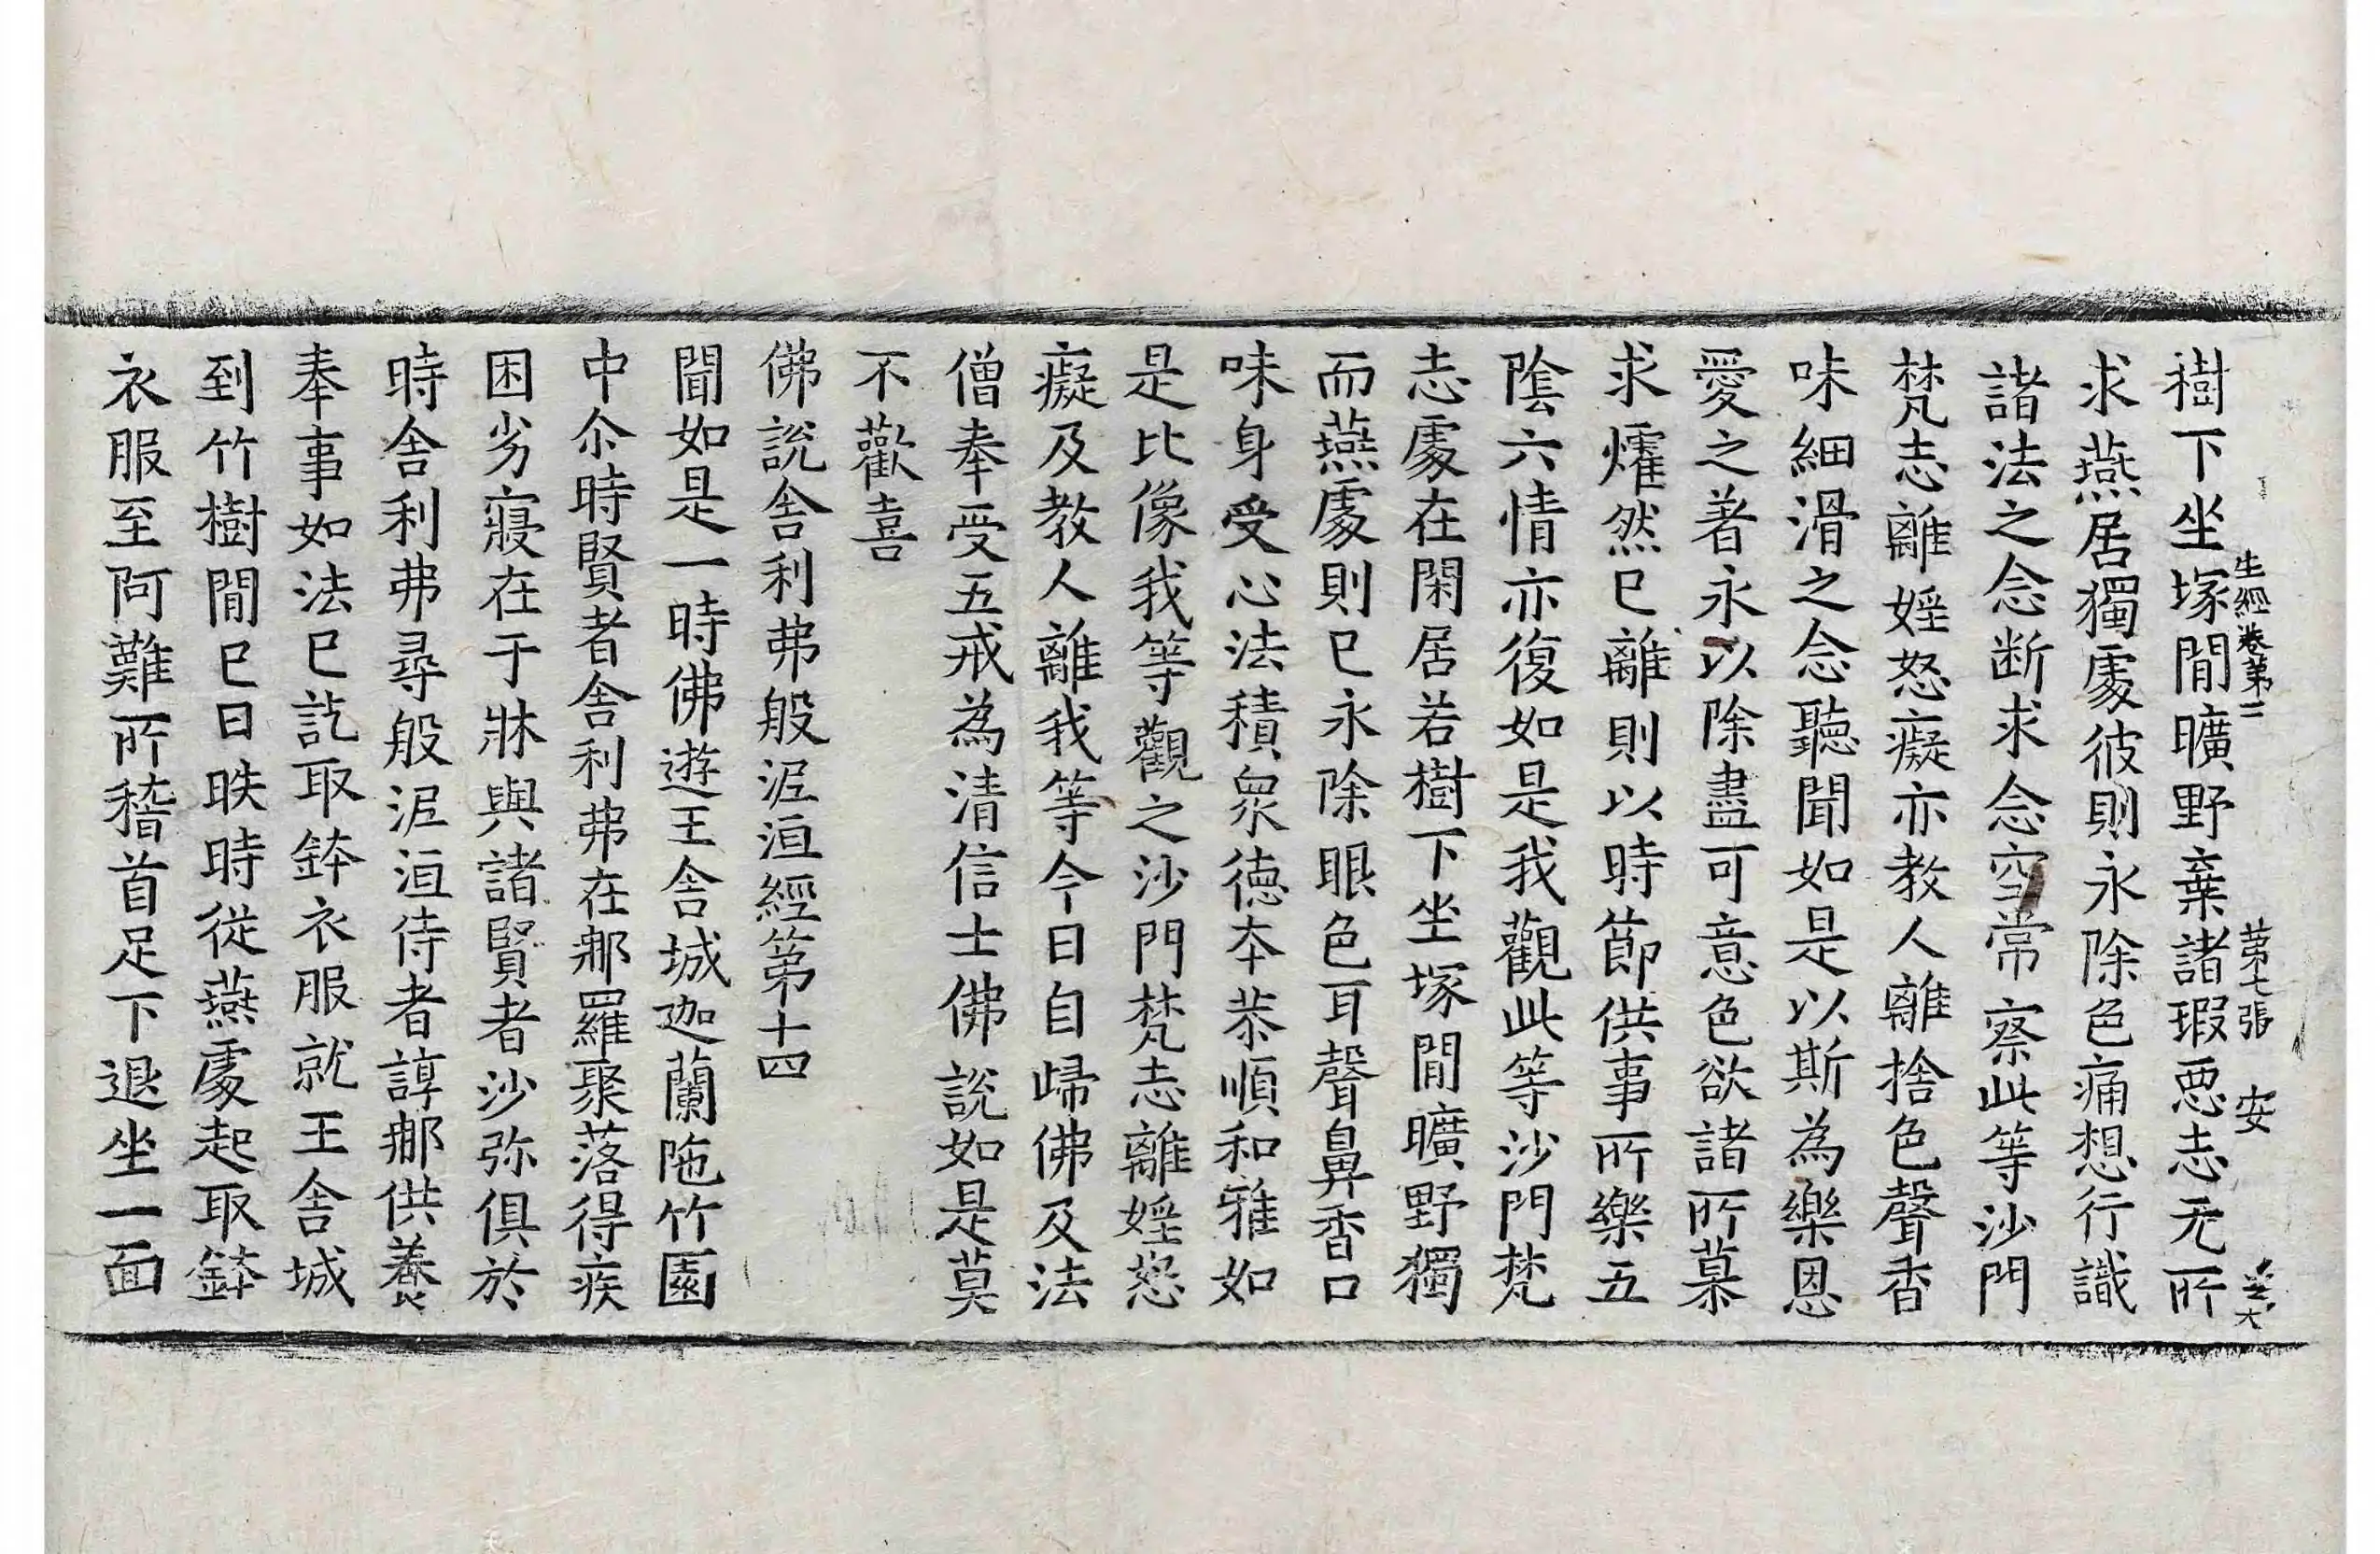 生經卷第二 第七張 安
樹下坐塚閒曠野棄諸瑕惡志无所
求燕居獨處彼則永除色痛想行識
諸法之念断求念空常察此等沙門
梵志離婬怒癡亦教人離捨色聲香
味細滑之念聽聞如是以斯為樂恩
愛之著永以除盡可意色欲諸所慕
求燿然已離則以時節供事所樂五
陰六情亦復如是我觀此等沙門梵
志處在閑居若樹下坐塚閒曠野獨
而燕處則已永除眼色耳聲鼻香口
味身受心法積衆德夲恭順和雅如
是比像我等觀之沙門梵志離婬怒
癡及教人離我等今日自歸佛及法
僧奉受五戒為清信士佛說如是莫
不歡喜
佛說舍利弗般泥洹經第十四
聞如是一時佛遊王舍城迦蘭陁竹園
中尒時賢者舍利弗在郍羅聚落得疾
困劣寢在于牀與諸賢者沙弥俱於
時舍利弗尋般泥洹侍者諄郍供養
奉事如法已訖取鉢衣服就王舍城
到竹樹閒已日昳時從燕處起取鉢
衣服至阿難所稽首足下退坐一面